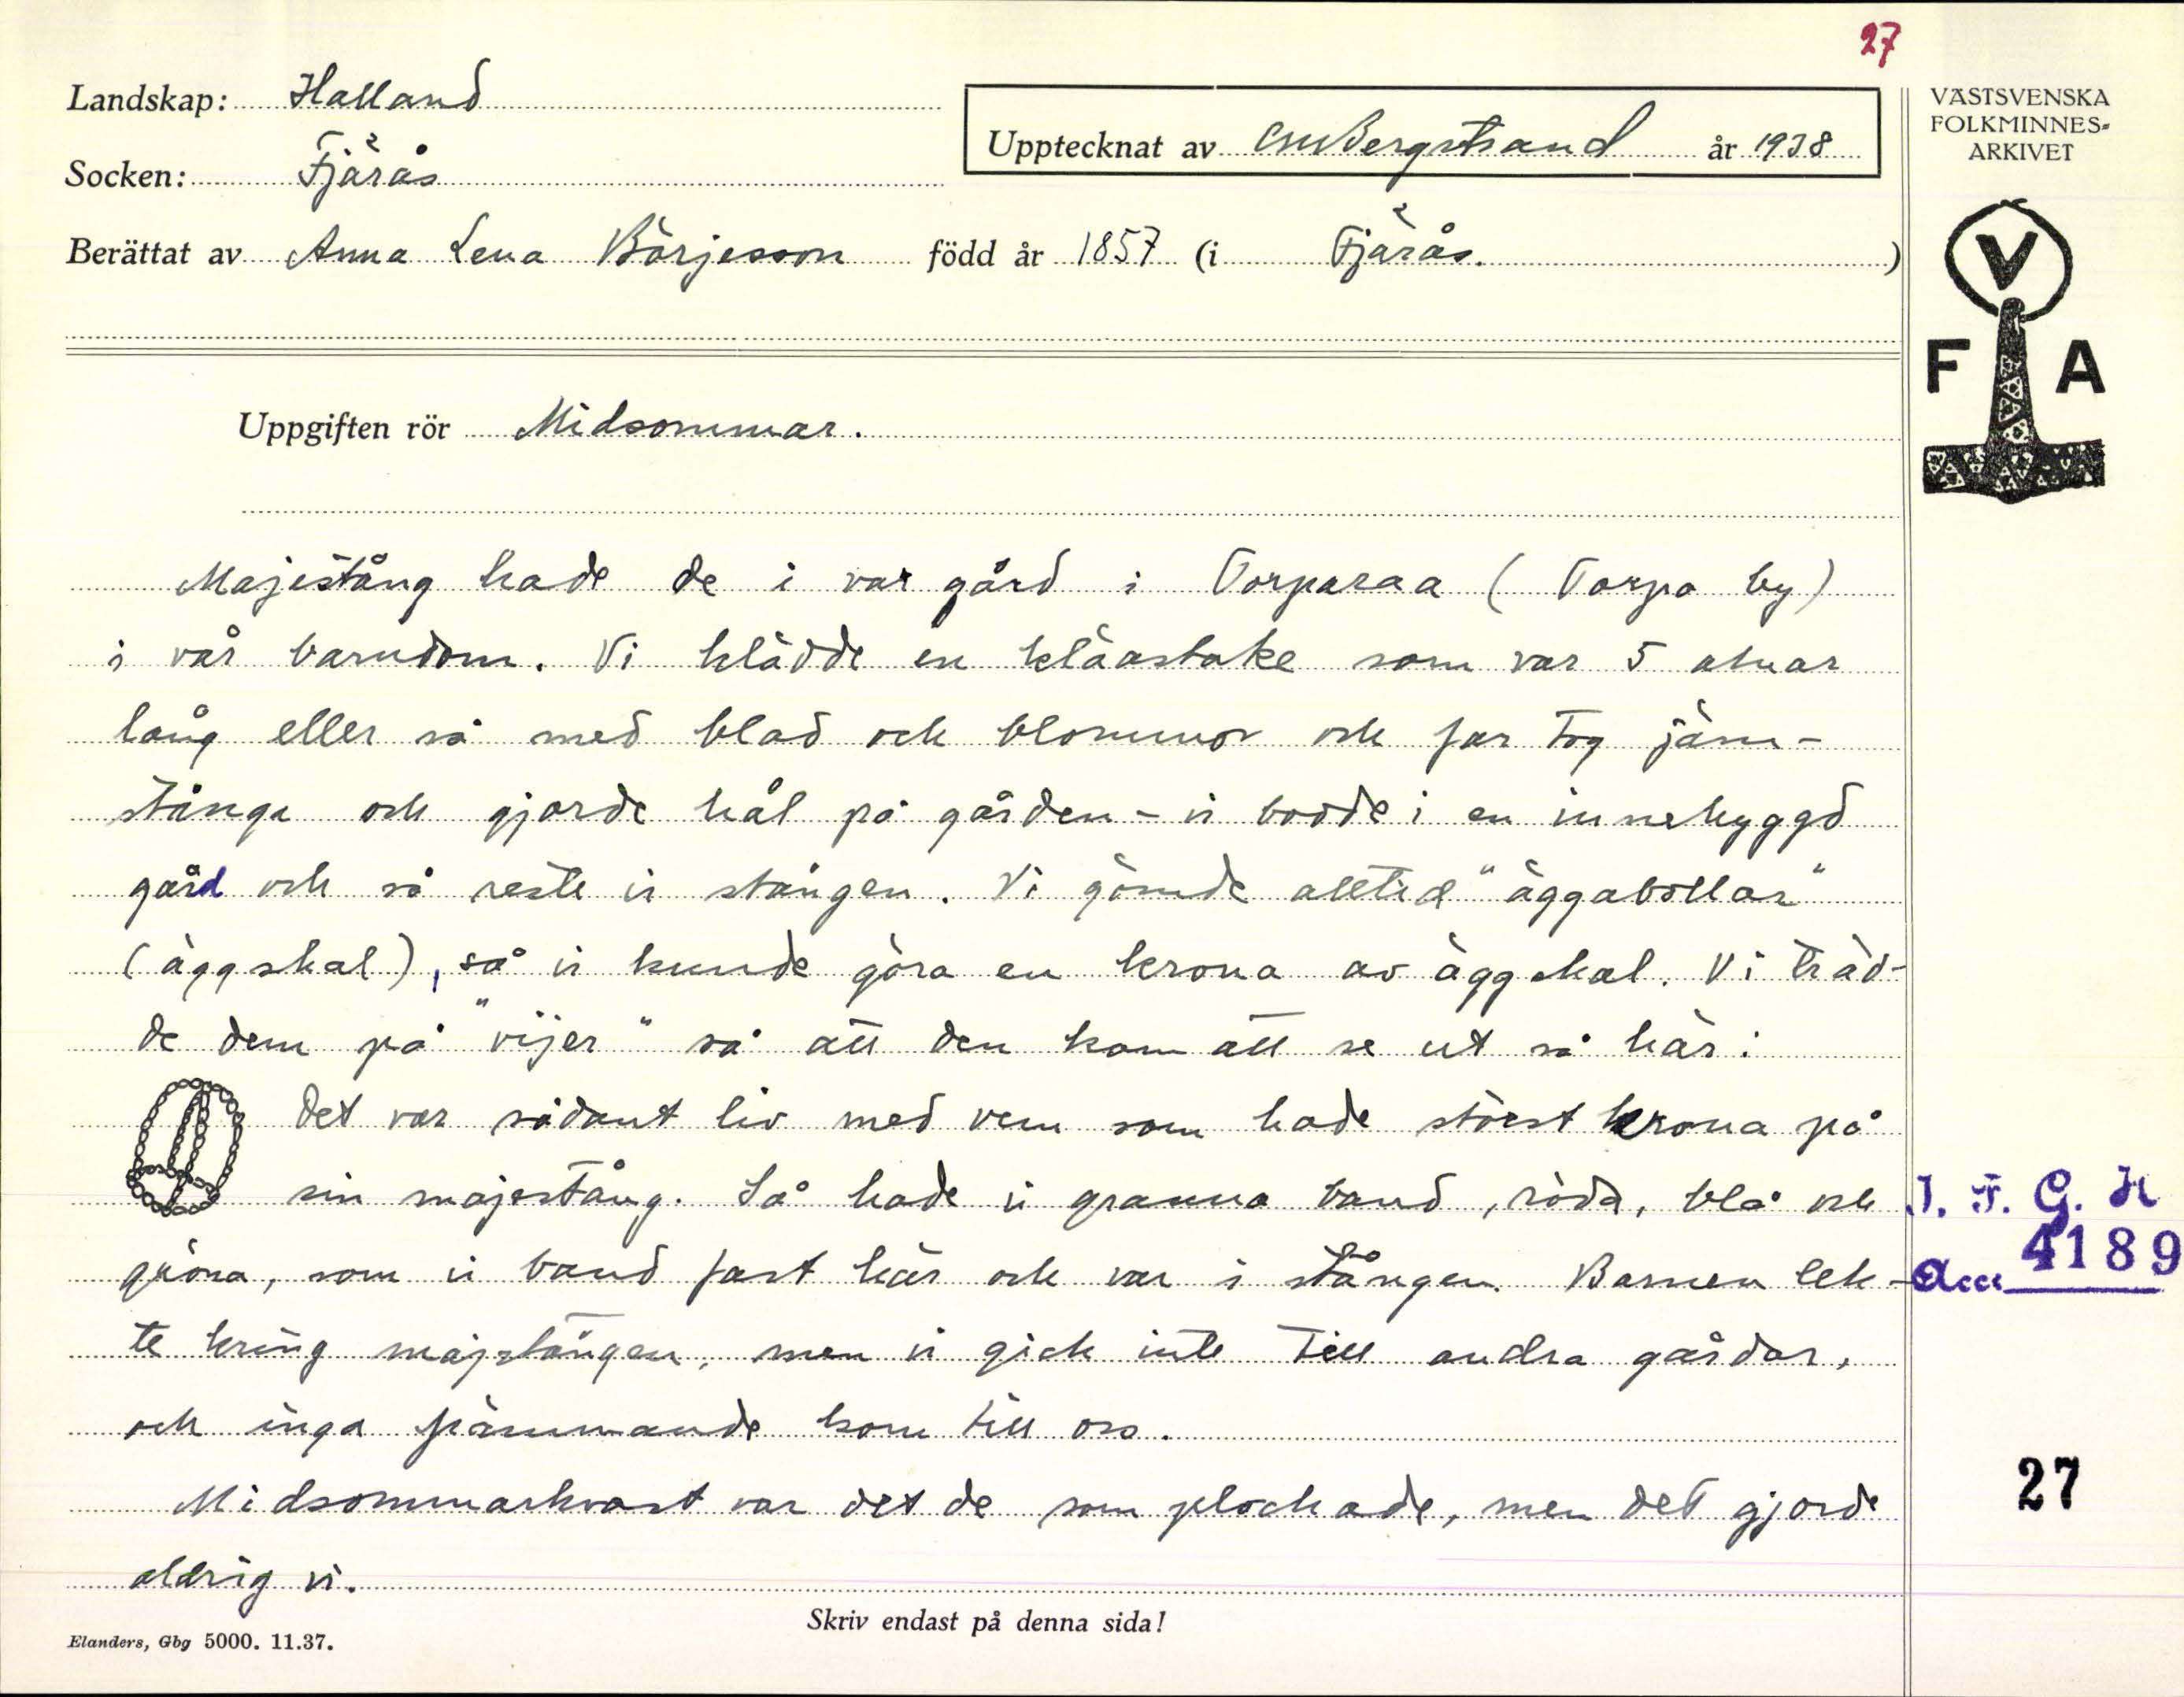 27
Landskap: Halland
Upptecknat av CMBergstrand år 1938
Socken: Fjärås
Berättat av Anna Lena Börjesson född år 1857 (i Fjärås.)
VÄSTSVENSKA
FOLKMINNES-
ARKIVET
V
F A
Uppgiften rör Midsommar.
Majestång hade de i var gård i Torparaa (Torpa by)
i vår barndom. Vi klädde en kläastake som var 5 alnar
lång eller så med blad och blommor och far tog järn-
stånga och gjorde hål på gården - vi bodde i en innebyggd
gård och så reste vi stången. Vi gömde alltid "äggabollar"
(äggskal), så vi kunde göra en krona av äggskal. Vi träd-
de dem på "vijer" så att den kom att se ut så här:
Det var sådant liv med vem som hade störst krona på
sin majestång. Så hade vi granna band, röda, blå och
gröna, som vi band fast här och var i stången. Barnen lek-
te kring majstången, men vi gick inte till andra gårdar,
och inga främmande kom till oss.
Midsommarkvast var det de som plockade, men det gjorde
aldrig vi.
I. F. G. H
Acc 4189
27
Skriv endast på denna sida!
Elanders, Gbg 5000. 11.37.